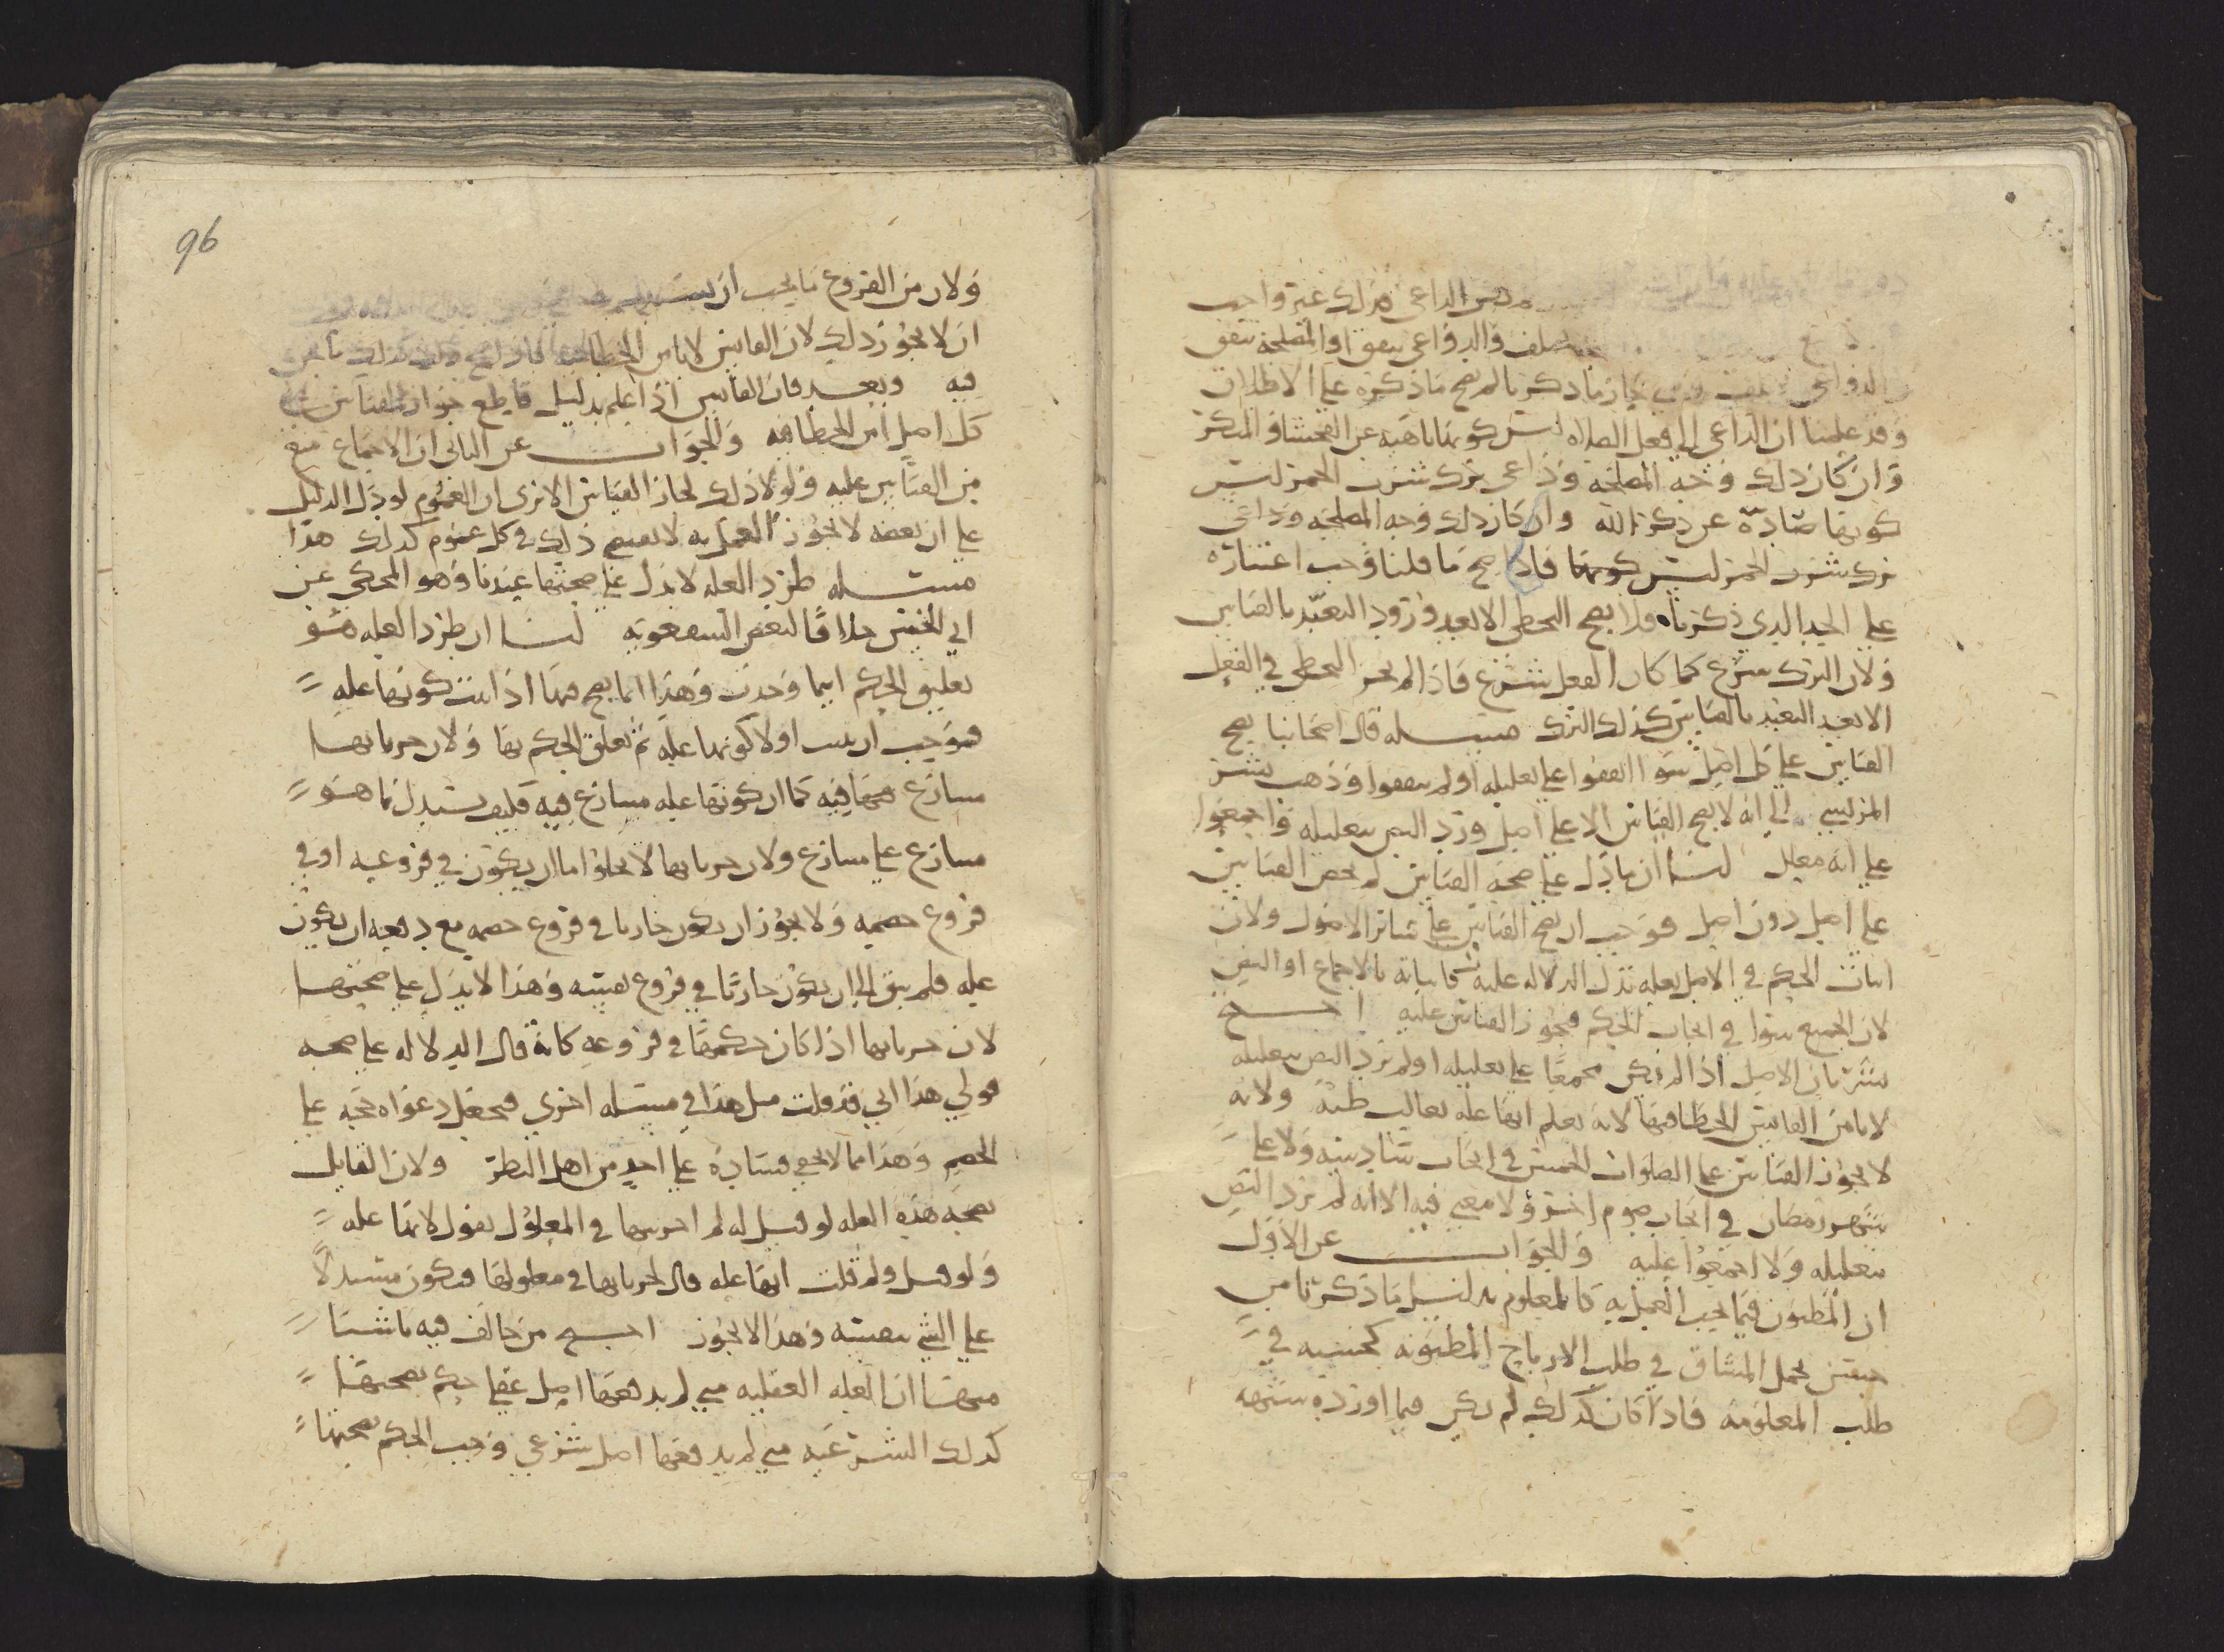 الداعي فذلك غير واجب
والدواعي تتفق او المصلحة تتفق
ما ذكرنا لم يصح ما ذكره على الاطلاق
وقد علمنا ان الداعي الى فعل الصلاه ليس كونها ناهية عن الفحشا والمنكر
وان كان ذلك وجه المصلحة وداعي ترك شرب الخمر ليس
كونها صادّة عن ذكر الله وان كان ذلك وجه المصلحه وداعي
ترك شرب الخمر ليس كونها فاذا صح ما قلنا وجب اعتباره
على الحد الذي ذكرناه ولا يصح التخطي الا بعد ورود التعبّد بالقياس
ولان الترك شرع كما كان الفعل شرع فاذا لم يجز التخطي في الفعل
الا بعد التعبد بالقياس كذلك الترك مسله قال اصحابنا يصح
القياس على كل اصل سوا اتفقوا على تعليله او لم يتفقوا وذهب بشر
المريسي الى انه لا يصح القياس الا على اصل ورد النص بتعليله واجمعوا
على انه معلل لنا ان ما دل على صحة القياس لم يخص القياس
على اصل دون اصل فوجب ان يصح القياس على سائر الاصول ولان
اثبات الحكم في الاصل بعله تدل الدلاله عليه كاثباته بالاجماع او النص
لان الجميع سوا في ايجاب الحكم فيجوز القياس عليه احتج
بشر بان الاصل اذا لم يكن مجمعا على تعليله او لم يرد النص بتعليله
لا يامن القايس الخطا فيها لانه يعلم انها عله بغالب ظنه ولانه
لا يجوز القياس على الصلوات الخمس في ايجاب سادسه ولا على
شهر رمضان في ايجاب صوم اخر ولا معنى فيه الا انه لم يرد النص
بتعليله ولا اجمعوا عليه والجواب عن الاول
ان المظنون فيما يجب العمل به كالمعلوم بدليل ما ذكرنا من
حسن تحمل المشاق في طلب الارباح المظنونه كحسنه في
طلب المعلومه فاذا كان كذلك لم يكن فيما اورده شبهه
96
ولان من الفروع ما يجب ان
ان لا يجوز ذلك لان القايس لا يامن الخطا
فيه وبعد فان القايس اذا علم بدليل قاطع جواز القياس على
كل اصل امن الخطا فيه والجواب عن الثاني ان الاجماع منع
من القياس عليه ولولا ذلك لجاز القياس الا ترى ان العموم لو دل الدليل
على ان بعضه لا يجوز العمل به لا يمنع ذلك في كل عموم كذلك هذا
مسله طرد العله لا يدل على صحتها عندنا وهو المحكي عن
ابي الحسن خلافا لبعض الشفعويه لنا ان طرد العله هو
تعليق الحكم اينما وجدت وهذا انما يصح فيها اذا ثبت كونها عله
فوجب ان يثبت اولا كونها عله ثم تعلق الحكم بها ولان جريانها
متنازع فيه كما ان كونها عله متنازع فيه فكيف يستدل بما هو
متنازع على متنازع ولان جريانها لا يخلوا اما ان يكون في فروعه او في
فروع خصمه ولا يجوز ان يكون جاريا في فروع خصمه مع دفعه ان يكون
عله فلم يبق الا ان يكون جاريا في فروع نفسه وهذا لا يدل على صحتها
لان جريانها اذا كان حكمها في فروعه كانه قال الدلاله على صحه
قولي هذا اني قد قلت مثل هذا في مسله اخرى فيجعل دعواه حجه على
الخصم وهذا مما لا يخفى فساده على احد من اهل النظر ولان القايل
بصحه هذه العله لو قيل له لم اجريتها في المعلول يقول لانها عله
ولو قيل ولم قلت انها عله قال لجريانها في معلولها فيكون مستدلا
على الشي بنفسه وهذا لا يجوز احتج من خالف فيه باشيا
منها ان العله العقليه متى لم يدفعها اصل عقلي حكم بصحتها
كذلك الشرعيه متى لم يدفعها اصل شرعي وجب الحكم بصحتها